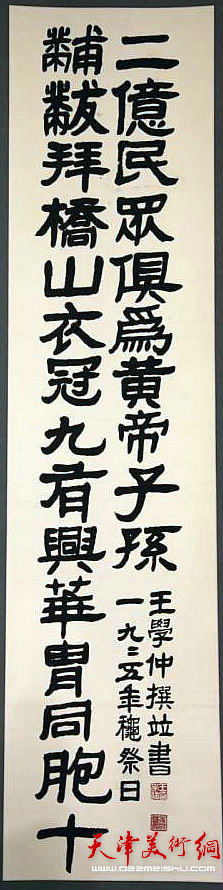 黼黻拜橋山衣冠九有興華胄同胞十
二億民眾俱爲黄帝子孫
王學仲撰竝書
一九〻五年穐祭日
天津美術網
www.022meishu.com